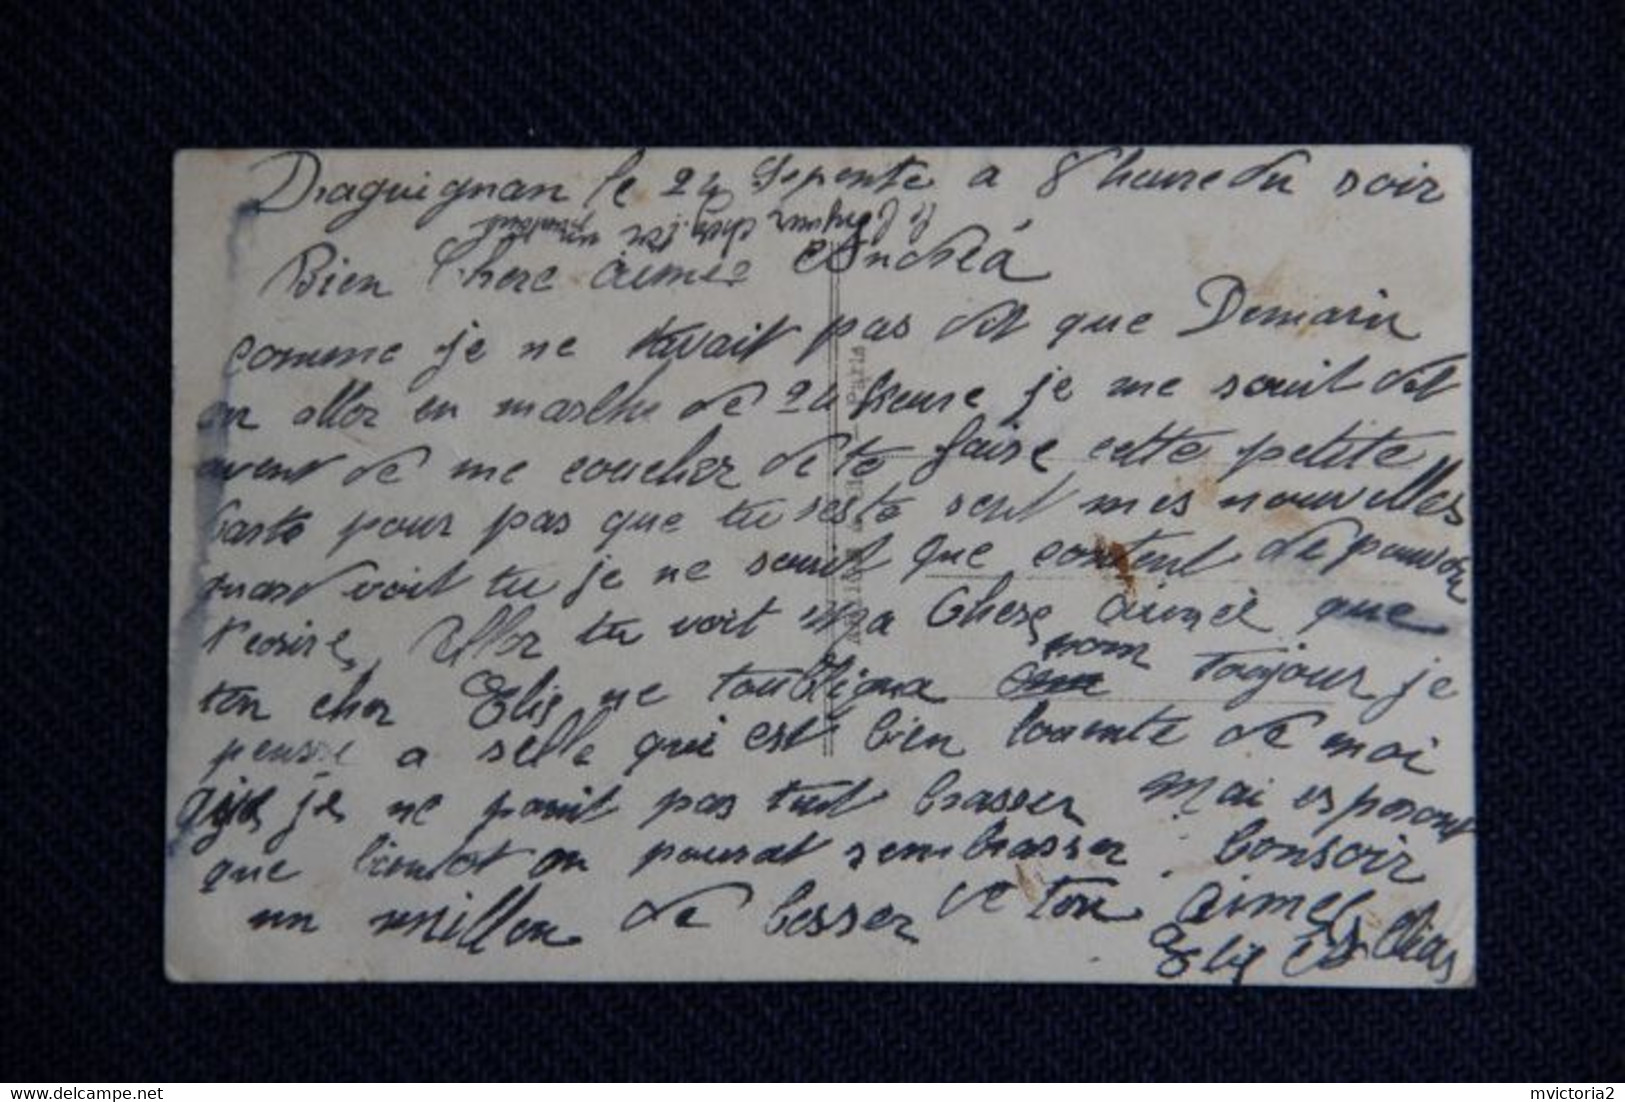 Draguignan le 24 Sepente a 8 heure du soir
Bien Chere aimée Andréa
comme je ne tavait pas dit que Demain
on allor en marche de 24 heure je me souit dit
avent de me coucher de te faire cette petite
Carte pour pas que tu reste sent mes nouvelles
mas voit tu je ne souit que content de pouvoir
t'ecrire, Allor tu voit ma Chere aimée que
ton cher Elis ne toublira non Toujour je
pense a selle qui est bien loamte de moi
que je ne pouit pas tut brasser Mai esperont
que bientot on pourat sembrasser bonsoir
un millon de besser de ton aimee
Elis
Paris
mvictoria2